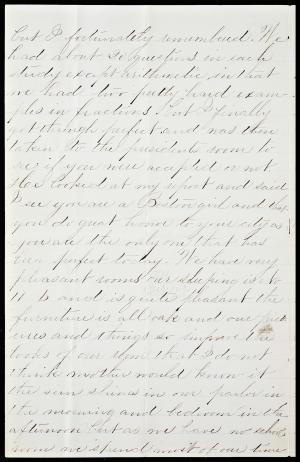 but I fortunately remembered. We
had about 20 questions in each
study except Arithmetic, in that
we had two pretty hard exam-
ples in fractions. But I finally
got through perfect and was then
taken to the presidents room to
see if you were accepted or not.
He looked at my report and said
I see you are a Boston girl and
you do great honor to your city as
you are the only one that has
been perfect to-day. We have very
pleasant rooms our sleeping is
and is quite pleasant the
furniture is all oak and our pict
ures and things so improve the
looks of our room that I do not
think mother would know it
the sun shines in our parlor in
the morning and bedroom in the
afternoon but as we have no school
room we spend most of our time